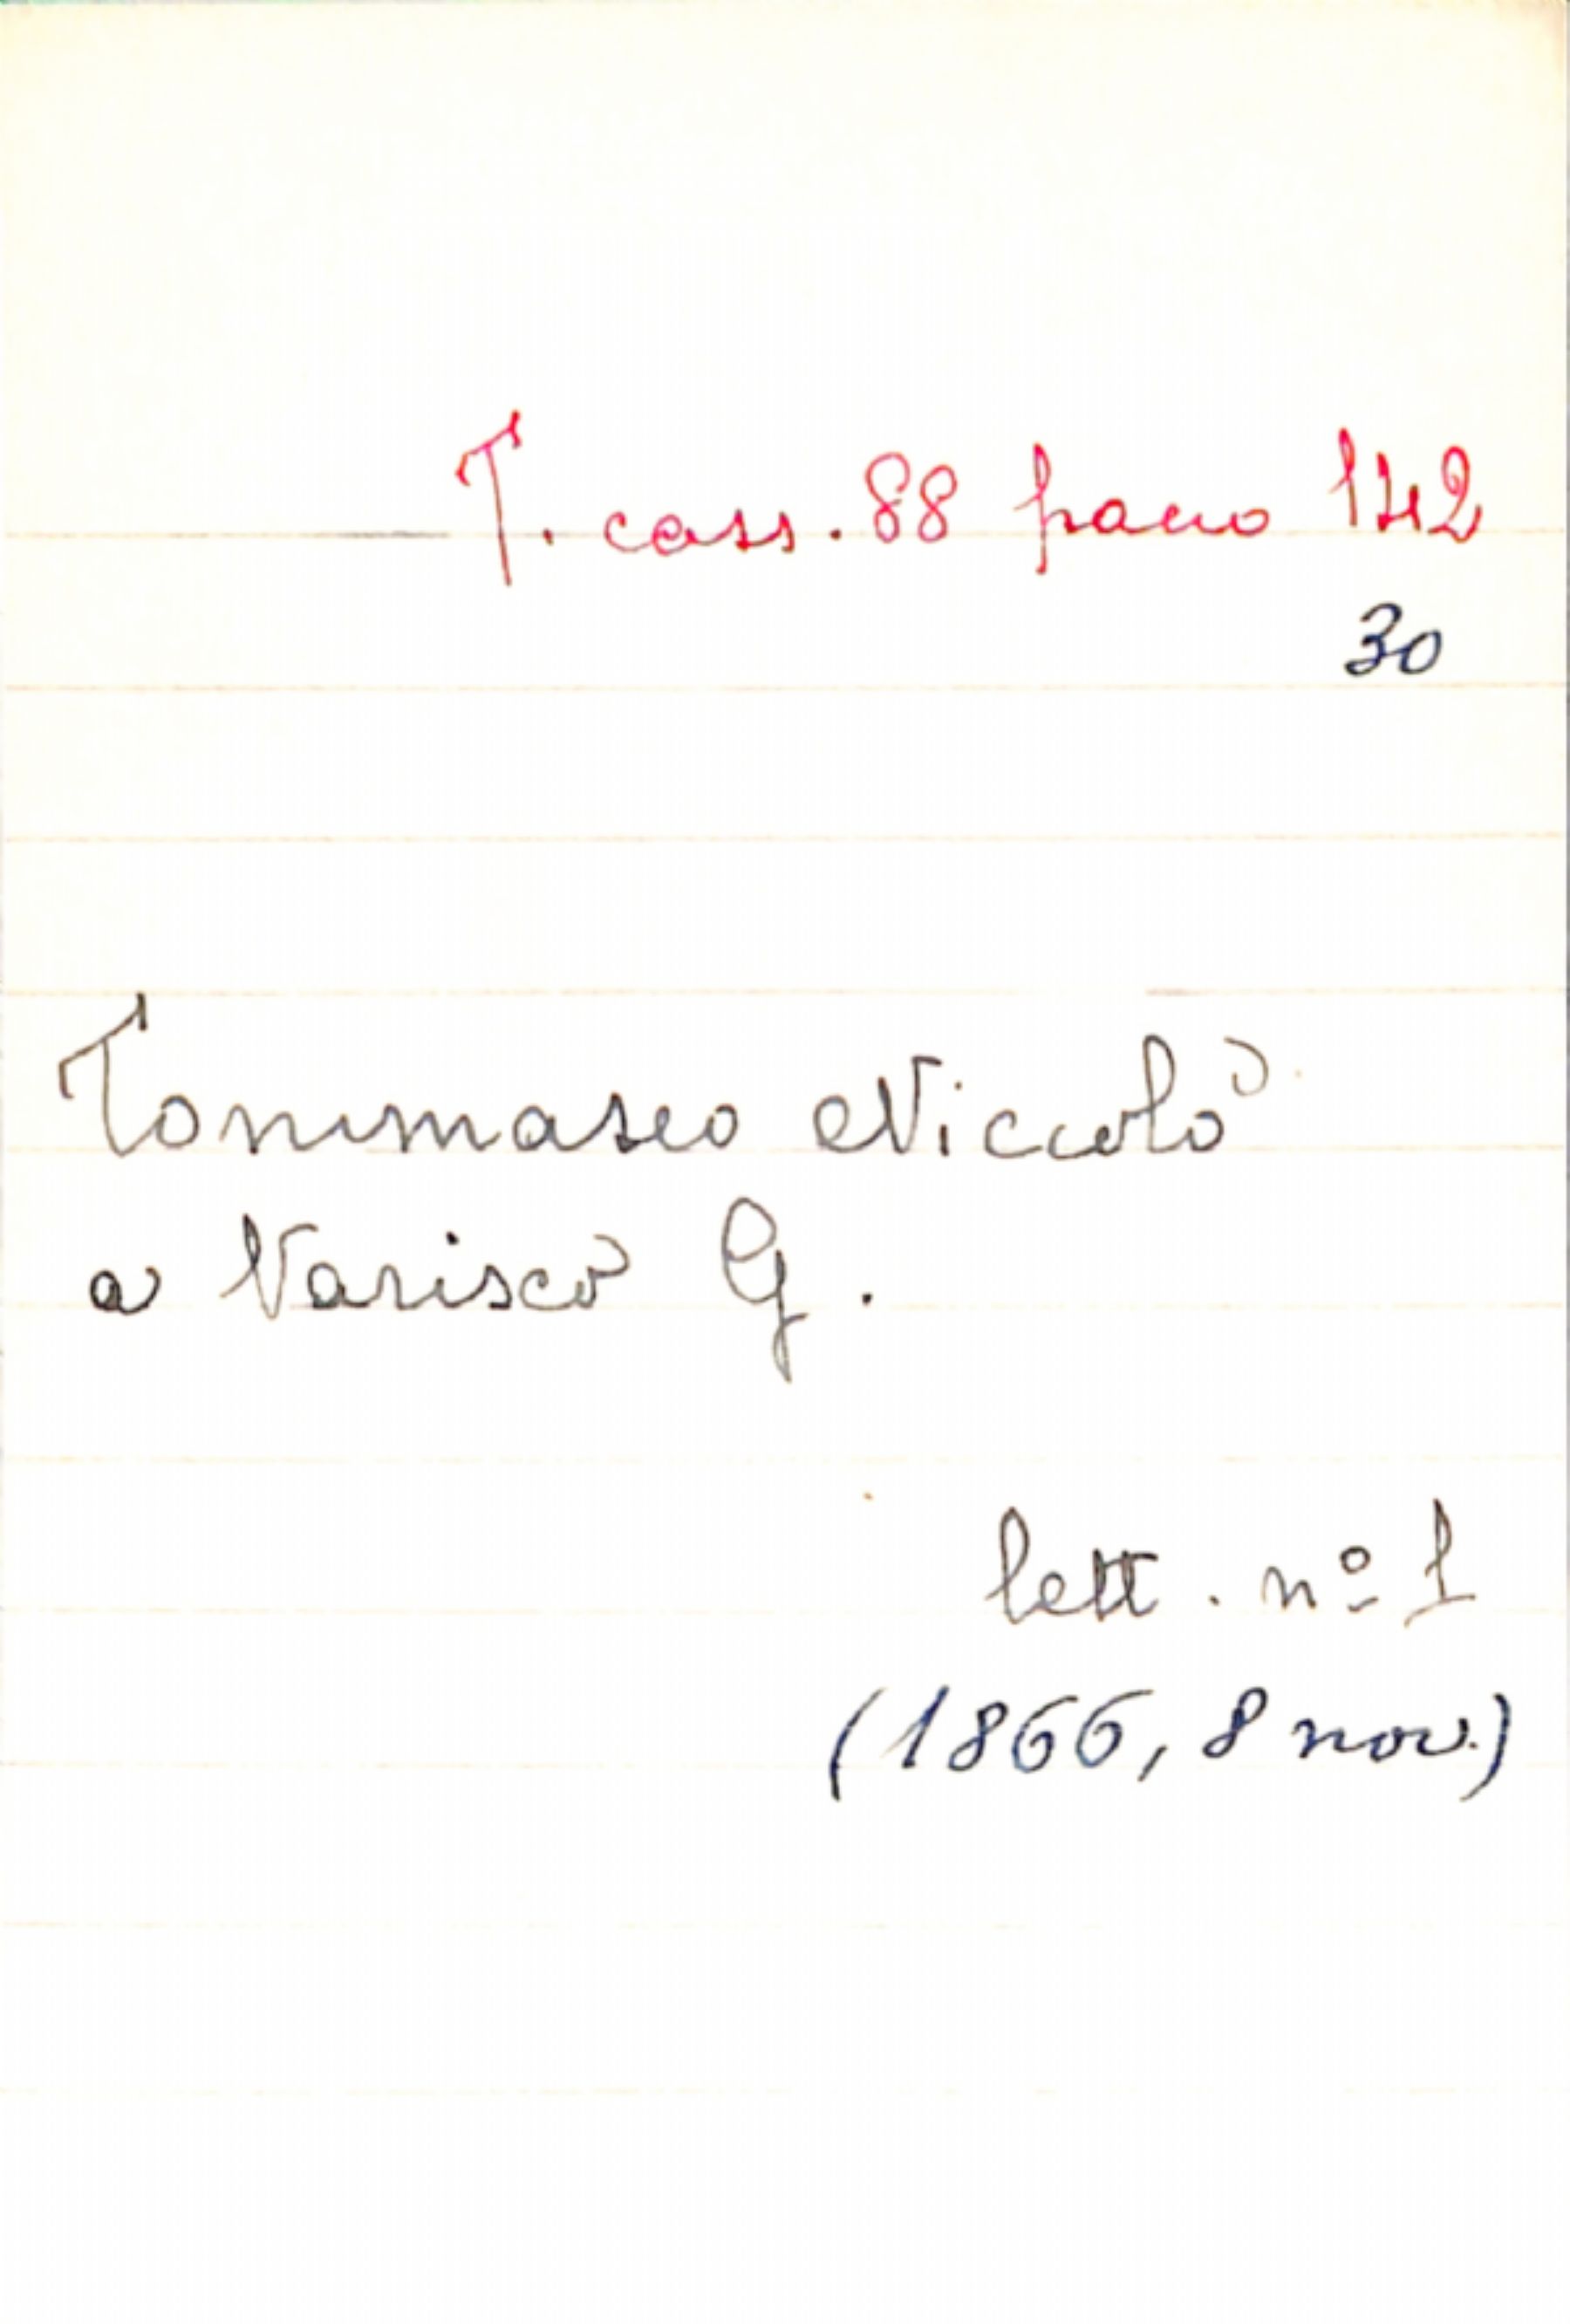 T. cass. 88 pacco 142
30
Tommaseo Niccolò
a Varisco G.
lett. nº 1
(1866, 8 nov.)